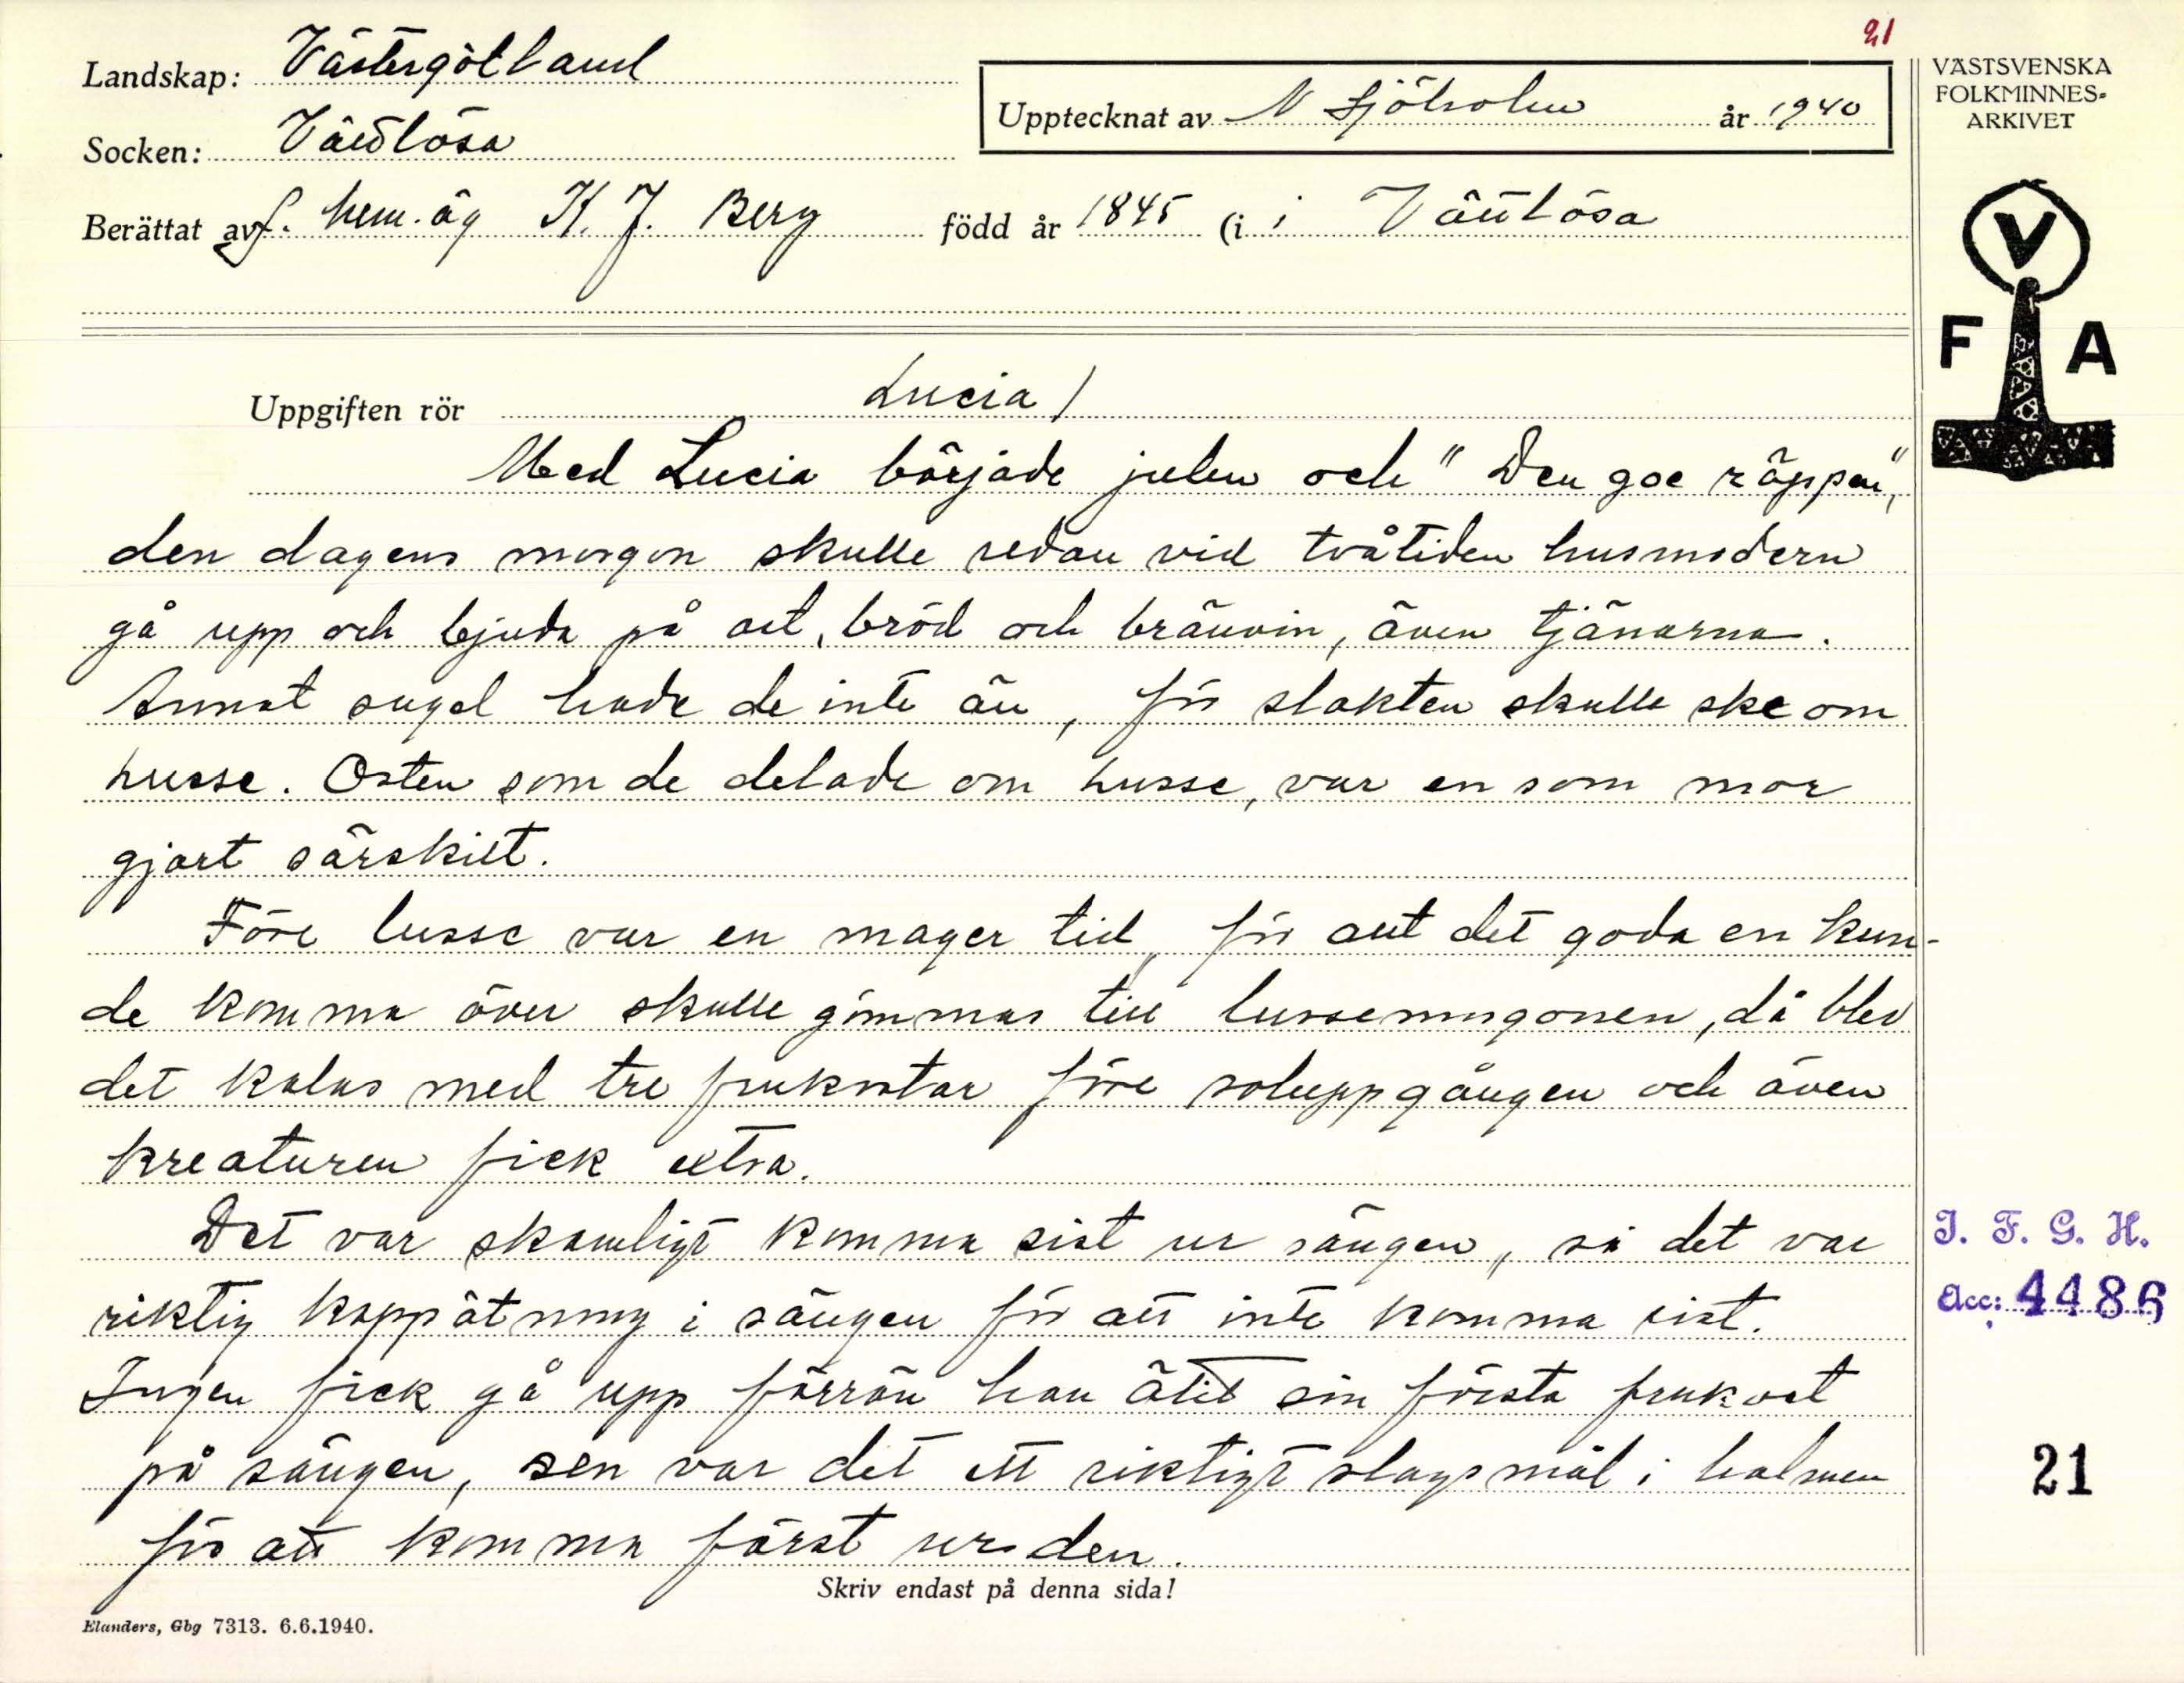 21
Landskap: Västergötland
VÄSTSVENSKA
FOLKMINNES-
ARKIVET
Upptecknat av N Sjöholm år 1940
Socken: Våmlösa
Berättat av f. hem. äg K. J. Berg född år 1845 (i i
V
F A
Uppgiften rör Lucia /
Med Lucia började julen och "Den goe räppen",
den dagens morgon skulle redan vid tvåtiden husmodern
gå upp och bjuda på ost, bröd och brännvin, även tjänarna.
Annat sugel hade de inte än, för slakten skulle ske om
Lusse. Osten som de delade om Lusse, var en som mor
gjort särskilt.
Före lusse var en mager tid, för allt det goda en kun-
de komma över skulle gömmas till lussemorgonen, då blev
det kalas med tre frukostar före soluppgången och även
kreaturen fick extra.
Det var skamligt komma sist ur sängen, så det var
riktig kappätning i sängen för att inte komma sist.
Ingen fick gå upp förrän han ätit sin första frukost
på sängen, sen var det ett riktigt slagsmål i halmen
för att komma först ur den.
J. F. G. H.
Acc: 4486
21
Skriv endast på denna sida!
Elanders, Gbg 7313. 6.6.1940.